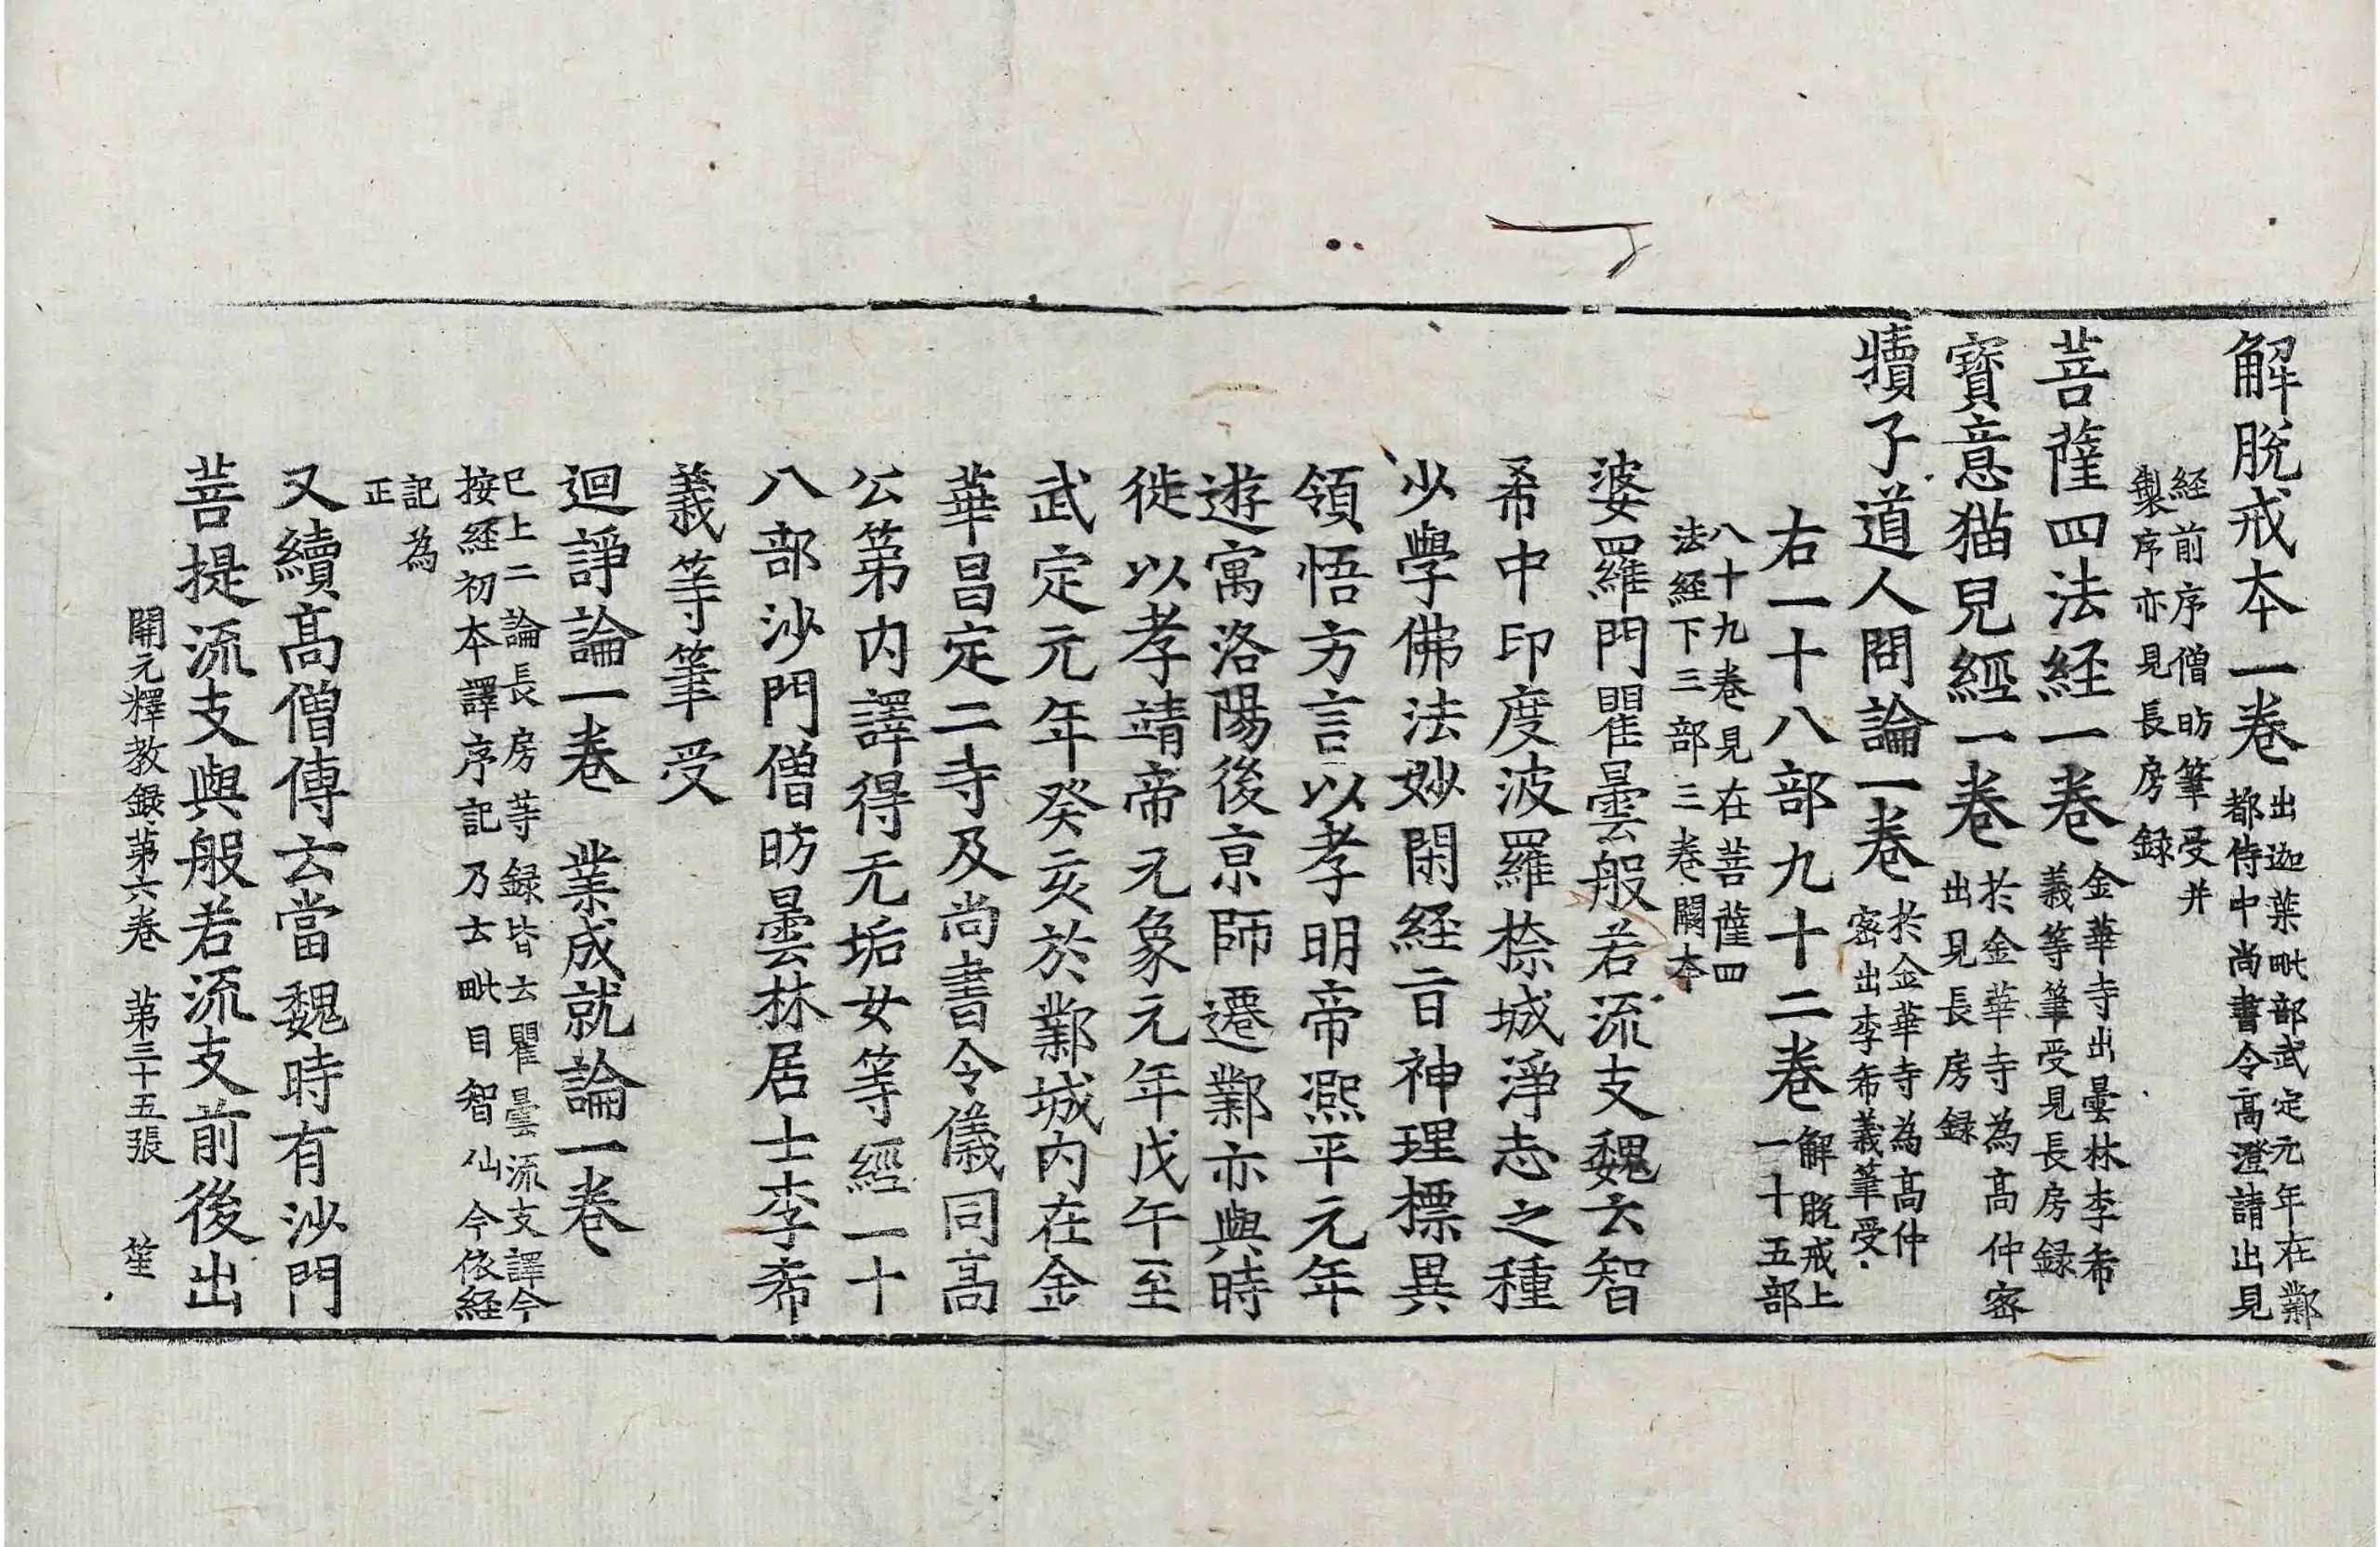 解脫戒本一卷出迦葉毗部武定元年在鄴
都侍中尚書令高澄請出見
経前序僧昉筆受并
製序亦見長房録
菩薩四法経一卷金華寺出曇林李希
義等筆受見長房録
寶意猫兒經一卷於金華寺為高仲密
出見長房録
犢子道人問論一卷於金華寺為高仲
密出李希義筆受
右一十八部九十二卷解脫戒上
一十五部
八十九卷見在菩薩四
法經下三部三卷闕本
婆羅門瞿曇般若流支魏云智
希中印度波羅㮈城淨志之種
少學佛法妙閑経旨神理摽異
領悟方言以孝明帝熈平元年
遊寓洛陽後京師遷鄴亦與時
徙以孝靖帝元象元年戊午至
武定元年癸亥於鄴城內在金
華昌定二寺及尚書令儀同高
公第内譯得无垢女等經一十
八部沙門僧昉曇林居士李希
義等筆受
迴諍論一卷 業成就論一卷
已上二論長房等録皆云瞿曇流支譯今
按経初本譯序記乃云毗目智仙今依経
記為
正
又續高僧傳云當魏時有沙門
菩提流支與般若流支前後出
開元釋教録第六卷 第三十五張 笙